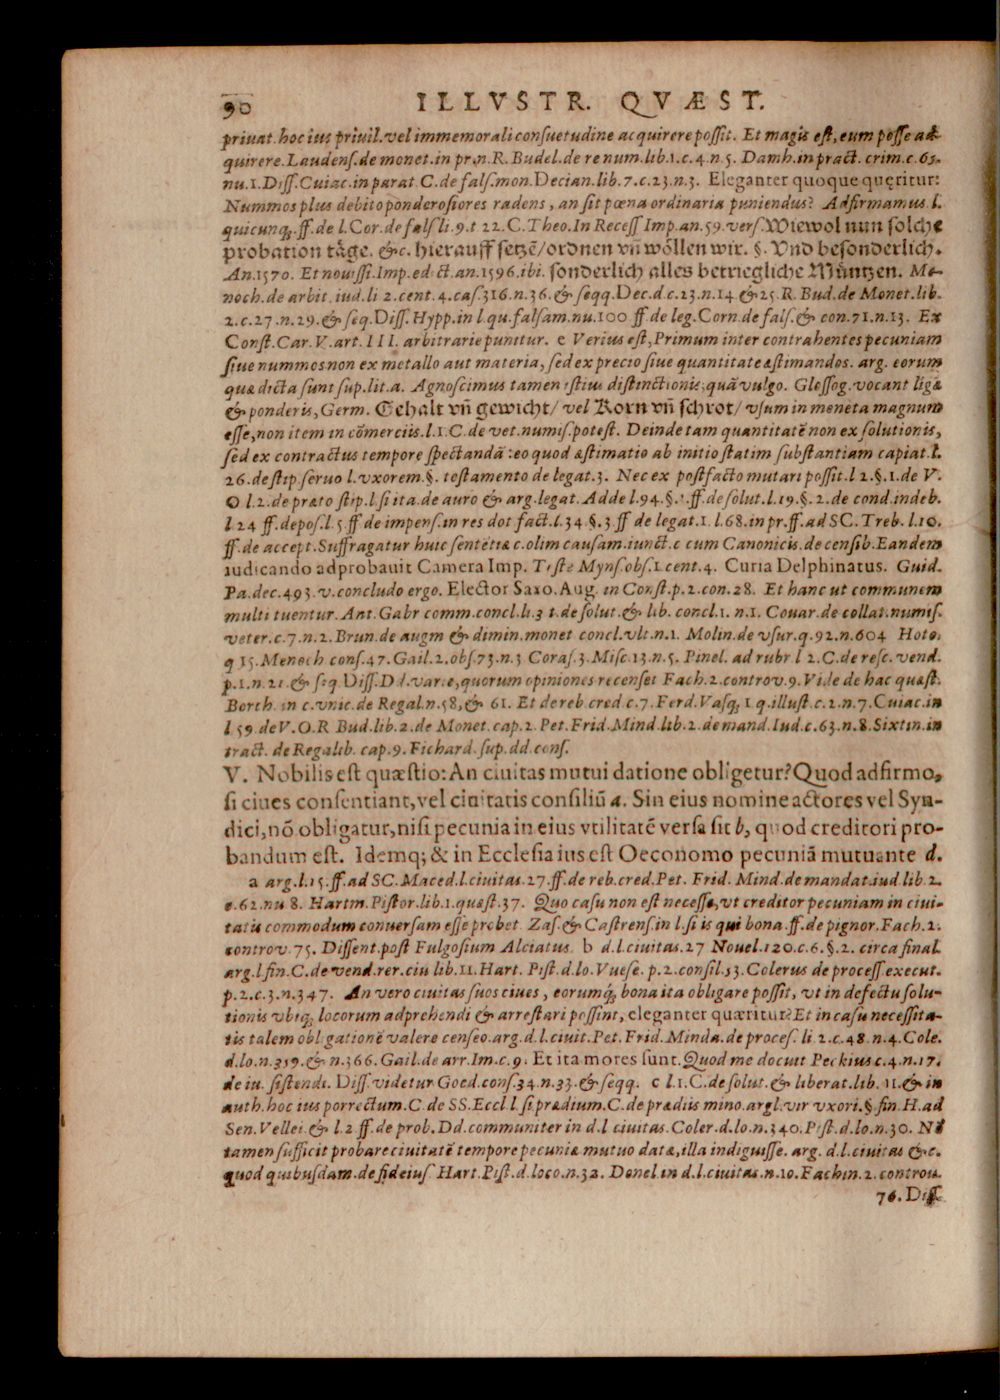 90 ILLVSTR. QVÆST.
priuat. hoc ius priuil. vel immemorali consuetudine acquirere possit. Et magis est, eum posse ad-
quirere. Laudens. de monet. in pr. n. R. Budel. de re num. lib. 1. c. 4. n. 5. Damh. in pract. crim. c. 65.
nu. 1. Diss. Cuiac. in parat C. de fals. mon. Decian. lib. 7. c. 23. n. 3. Eleganter quoque quęritur:
Nummos plus debito ponderosiores radens, an sit pœna ordinaria puniendus? Adfirmamus. l.
quicunq; ff. de l. Cor. de fals li. 9. t 22. C. Theo. In Recess Imp. an. 59. vers. Wiewol nun solche
probation tåge. &c. hierauff setzē/ordnen vñ wöllen wir. §. Vnd besonderlich.
An. 1570. Et nouiss. Imp. ed ct. an. 1596. ibi. sonderlich alles betriegliche Müntzen. Me-
noch. de arbit. iud. li 2. cent. 4. cas. 316. n. 36. & seqq. Dec. d. c. 23. n. 14 & 25. R. Bud. de Monet. lib.
2. c. 27. n. 29. & seq. Diss. Hypp. in l. qu. falsam. nu. 100 ff. de leg. Corn. de fals. & con. 71. n. 13. Ex
Const. Car. V. art. III. arbitrarie punitur. c Verius est, Primum inter contrahentes pecuniam
siue nummos non ex metallo aut materia, sed ex precio siue quantitate æstimandos. arg. eorum
quæ dicta sunt sup. lit. a. Agnoscimus tamen istius distinctionis, quā vulgo. Glossog. vocant ligæ
& ponderis, Germ. Gehalt vñ gewicht/ vel Korn vñ schrot/ vsum in moneta magnum
esse, non item in cōmerciis. l. 1. C. de vet. numis. potest. Deinde tam quantitatē non ex solutionis,
sed ex contractus tempore spectandā: eo quod æstimatio ab initio statim substantiam capiat. l.
26. de stip. seruo l. vxorem. §. testamento de legat. 3. Nec ex postfacto mutari possit. l 2. §. 1. de V.
O l. 2. de præto stip. l. si ita. de auro & arg. legat. Adde l. 94. §. 1. ff. de solut. l. 19. §. 2. de cond. indeb.
l 24 ff. depos. l. 5 ff de impens. in res dot fact. l. 34. §. 3 ff de legat. 1. l. 68. in pr. ff. ad SC. Treb. l. 10.
ff. de accept. Suffragatur huic sentētiæ c. olim causam. iunct. c cum Canonicis. de censib. Eandem
iudicando adprobauit Camera Imp. Teste Myns. obs. 1. cent. 4. Curia Delphinatus. Guid.
Pa. dec. 493. v. concludo ergo. Elector Saxo. Aug. in Const. p. 2. con. 28. Et hanc ut communem
multi tuentur. Ant. Gabr comm. concl. li. 3 t. de solut. & lib. concl. 1. n. 1. Couar. de collat. numis.
veter. c. 7. n. 2. Brun. de augm & dimin. monet concl. vlt. n. 1. Molin. de vsur. q. 92. n. 604 Hoto.
q 15. Menoch cons. 47. Gail. 2. obs. 73. n. 3 Coras. 3. Misc. 13. n. 5. Pinel. ad rubr l 2. C. de resc. vend.
p. 1. n. 21. & seq. Diss. Dd. varie, quorum opiniones recenset Fach. 2. controv. 9. Vide de hac quæst.
Borch. in c. vnic. de Regal. n. 58, & 61. Et de reb. cred c. 7. Ferd. Vasq; 1 q. illust. c. 2. n. 7. Cuiac. in
l 59. de V. O. R Bud. lib. 2. de Monet. cap. 2. Pet. Frid. Mind. lib. 2. de mand. Iud. c. 63. n. 8. Sixtin. in
tract. de Regalib. cap. 9. Fichard. sup. dd. cons.
V. Nobilis est quæstio: An ciuitas mutui datione obligetur? Quod adfirmo,
si ciues consentiant, vel ciuitatis consiliū a. Sin eius nomine actores vel Syn-
dici, nō obligatur, nisi pecunia in eius vtilitatē versa sit b, quod creditori pro-
bandum est. Idemq; & in Ecclesia ius est Oeconomo pecuniā mutuante d.
a arg. l. 15. ff. ad SC. Maced. l. ciuitas. 27. ff. de reb. cred. Pet. Frid. Mind. de mandat. iud lib. 2.
c. 62. nu 8. Hartm. Pistor. lib. 1. quæst. 37. Quo casu non est necesse, vt creditor pecuniam in ciui-
tatis commodum conuersam esse probet. Zas. & Castrens. in l. si is qui bona. ff. de pignor. Fach. 2.
controv. 75. Dissent. post Fulgosium Alciatus. b d. l. ciuitas. 27 Nouel. 120. c. 6. §. 2. circa final.
arg. l. fin. C. de vend. rer. ciu lib. 11. Hart. Pist. d. lo. Vuese. p. 2. consil. 53. Colerus de process. execut.
p. 2. c. 3. n. 347. An vero ciuitas suos ciues, eorumq; bona ita obligare possit, vt in defectu solu-
tionis vbiq; locorum adprehendi & arrestari possint, eleganter quæritur? Et in casu necessita-
tis talem obligationē valere censeo. arg. d. l. ciuit. Pet. Frid. Minda. de proces. li 2. c. 48. n. 4. Cole.
d. lo. n. 359. & n. 366. Gail. de arr. Im. c. 9. Et ita mores sunt. Quod me docuit Peckius c. 4. n. 17.
de iu. sistendi. Diss. videtur Goed. cons. 34. n. 33. & seqq. c l. 1. C. de solut. & liberat. lib. 11. & in
auth. hoc ius porrectum. C. de SS. Eccl l. si prædium. C. de prædiis mino. arg l. vir vxori. §. fin. H. ad
Sen. Vellei. & l. 2 ff. de prob. Dd. communiter in d. l ciuitas. Coler. d. lo. n. 340. Pist. d. lo. n. 30. Nō
tamen sufficit probare ciuitatē tempore pecuniæ mutuo datæ, illa indiguisse. arg. d. l. ciuitas &c.
quod quibusdam. de fideius. Hart. Pist. d. loco. n. 32. Donel. in d. l. ciuitas. n. 10. Fachin. 2. controu.
76. Diss.